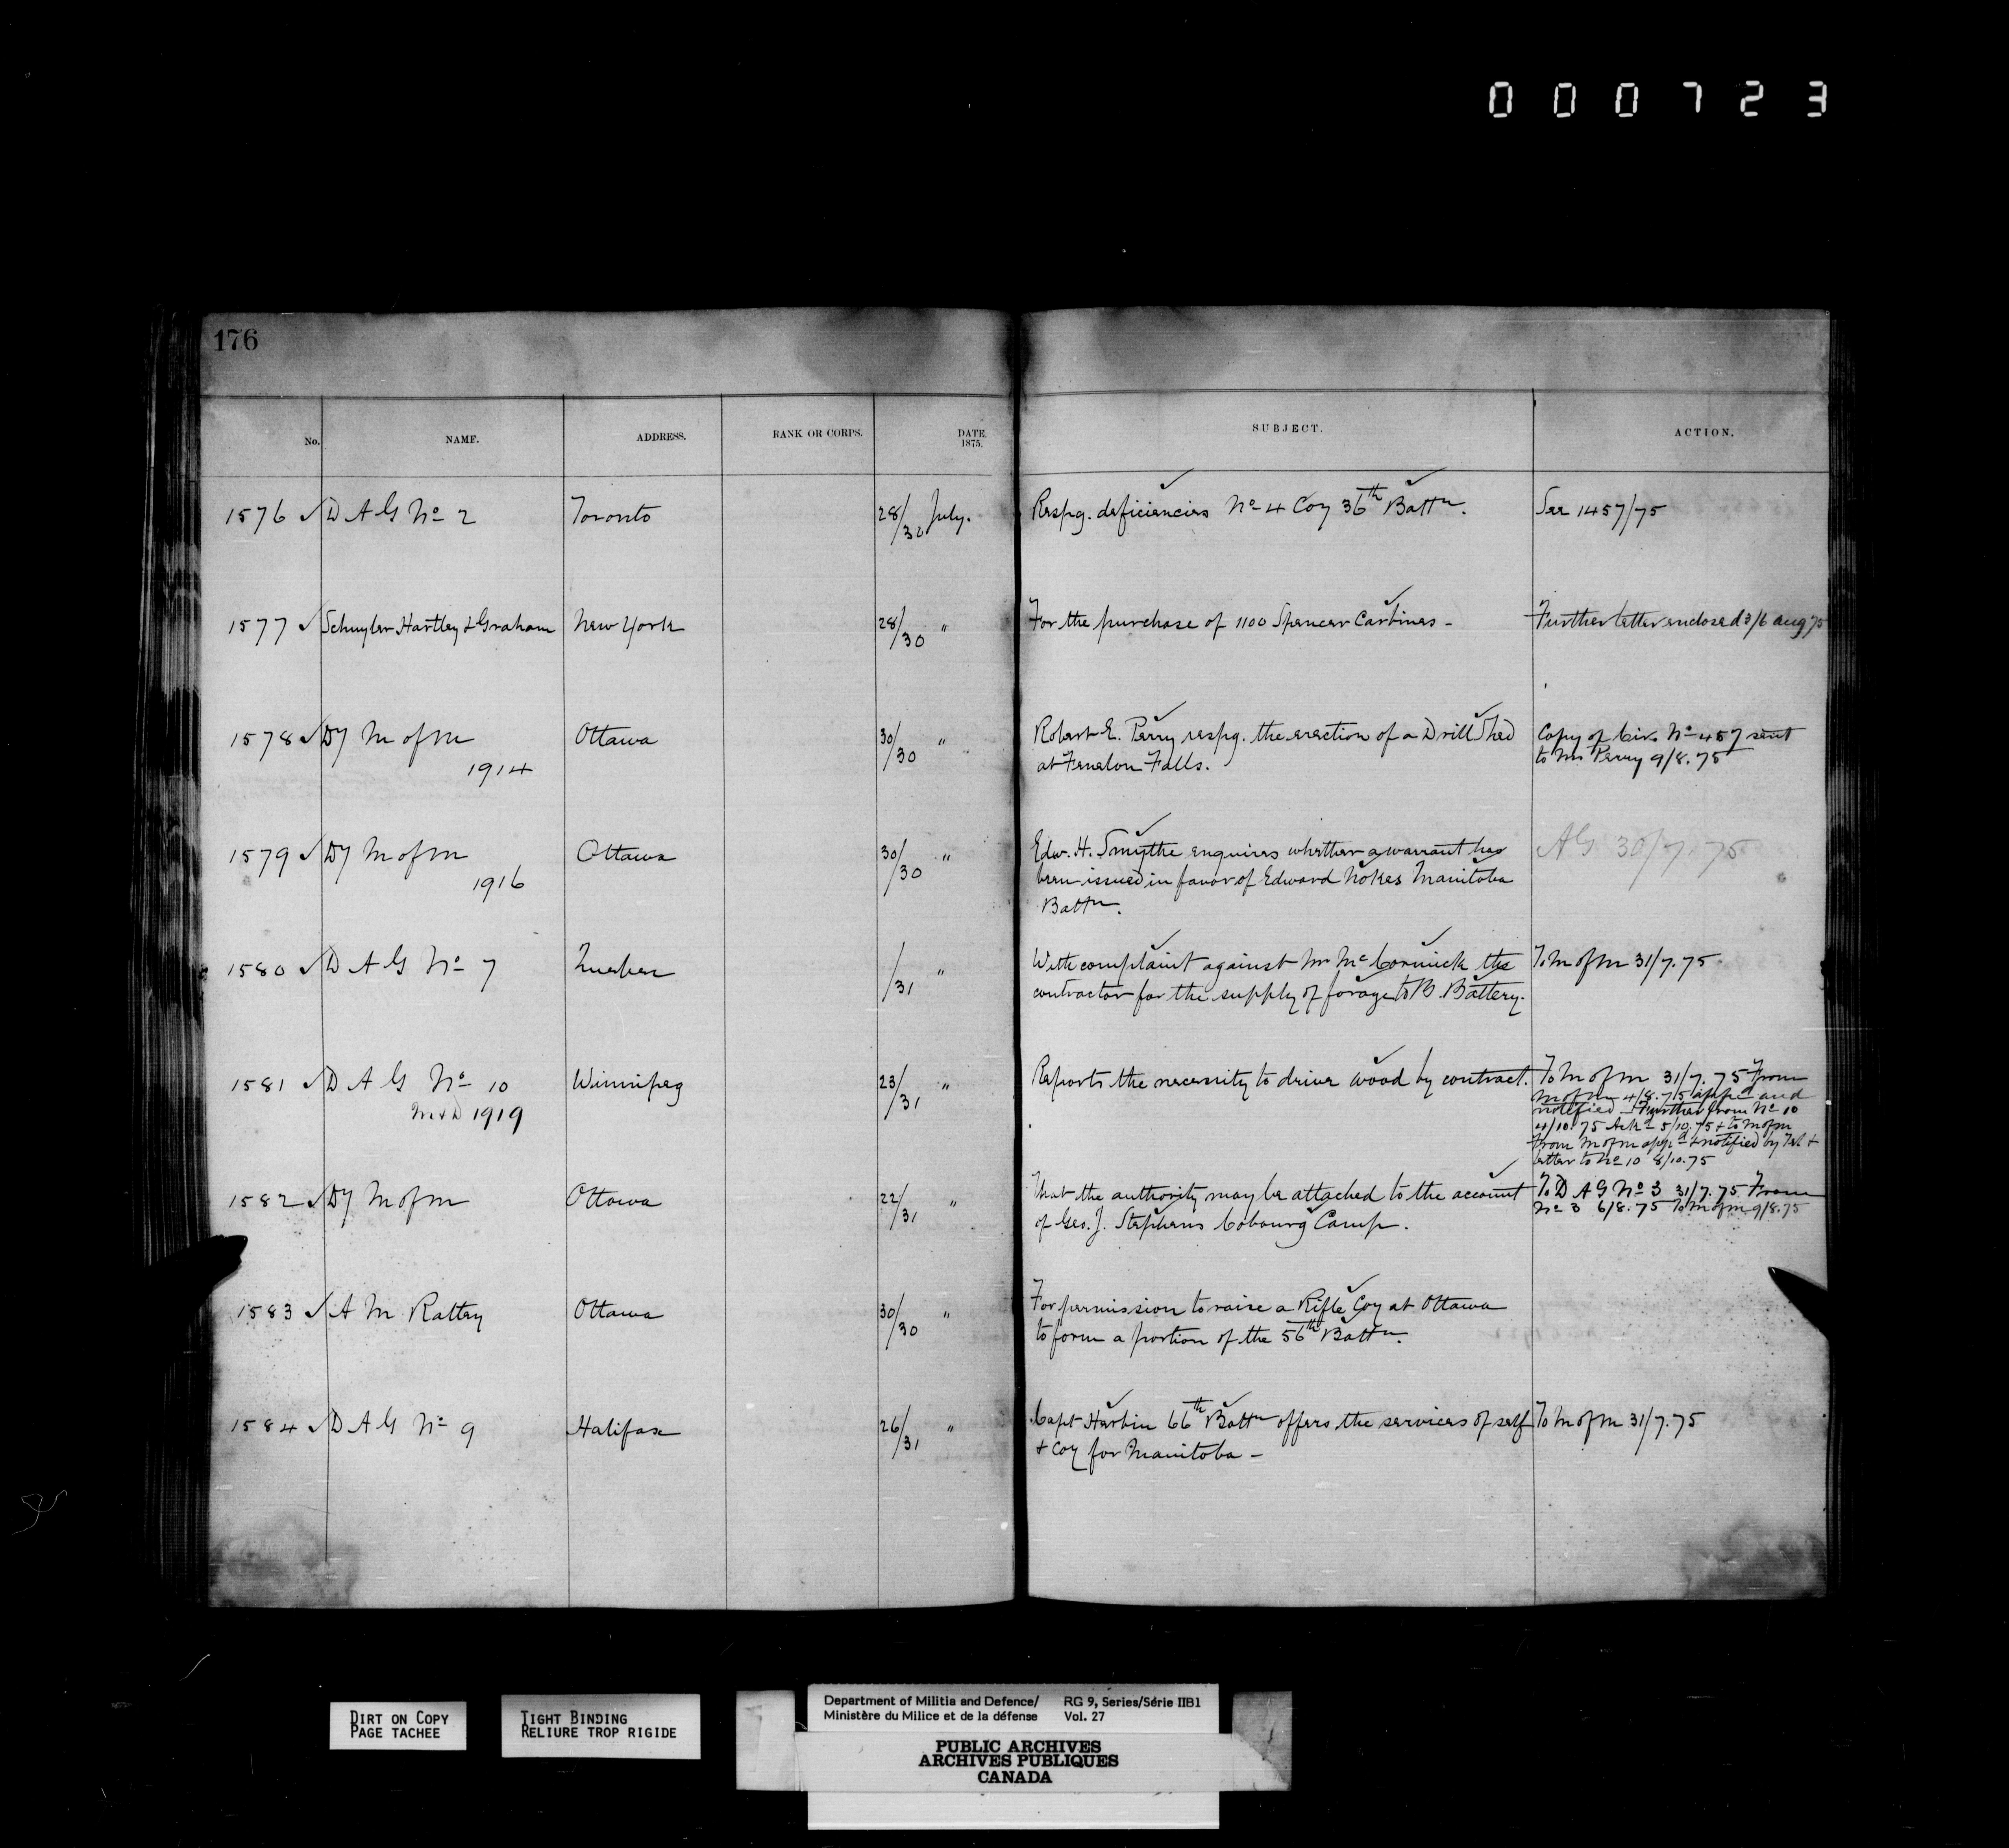 000723
176
No. NAME. ADDRESS. RANK OR CORPS. DATE. 1875. SUBJECT. ACTION.
1576 ✓ D A G No 2 Toronto 28/30 July. Respg. deficiencies No 4 Coy 36th Battn. See 1457/75
1577 ✓ Schuyler Hartley & Graham New York 28/30 " For the purchase of 1100 Spencer Carbines - Further letter enclosed 3/6 Aug 75
1578 ✓ Dy M of M Ottawa 30/30 " Robert E. Perry respg. the erection of a Drill Shed Copy of Cir. No 457 sent
1914 at Fenelon Falls. to Mr Perry 9/8.75
1579 ✓ Dy M of M Ottawa 30/30 " Edw. H. Smythe enquires whether a warrant has AG 30/7 75
1916 been issued in favor of Edward Nokes Manitoba
Battn.
1580 ✓ D A G No 7 Quebec /31 " With complaint against Mr McCormick the To M of M 31/7.75.
contractor for the supply of forage to B. Battery.
1581 ✓ D A G No 10 Winnipeg 23/31 " Reports the necessity to drive wood by contract. To M of M 31/7.75 From
M & D 1919 M of M 4/8.75 appd and
notified Further from No 10
4/10.75 Ackd 5/10.75 & to M of M
From M of M appd & notified by Tel &
letter to No 10 8/10.75
1582 ✓ Dy M of M Ottawa 22/31 " That the authority may be attached to the account To D A G No 3 31/7.75 From
of Geo. J. Stephens Cobourg Camp. No 3 6/8.75 To M of M 9/8.75
1583 ✓ A M Rattey Ottawa 30/30 " For permission to raise a Rifle Coy at Ottawa
to form a portion of the 56th Battn.
1584 ✓ D A G No 9 Halifax 26/31 " Capt Harbin 66th Battn offers the services of self To M of M 31/7.75
& Coy for Manitoba -
DIRT ON COPY
PAGE TACHEE
TIGHT BINDING
RELIURE TROP RIGIDE
Department of Militia and Defence/ RG 9, Series/Série IIB1
Ministère du Milice et de la défense Vol. 27
PUBLIC ARCHIVES
ARCHIVES PUBLIQUES
CANADA